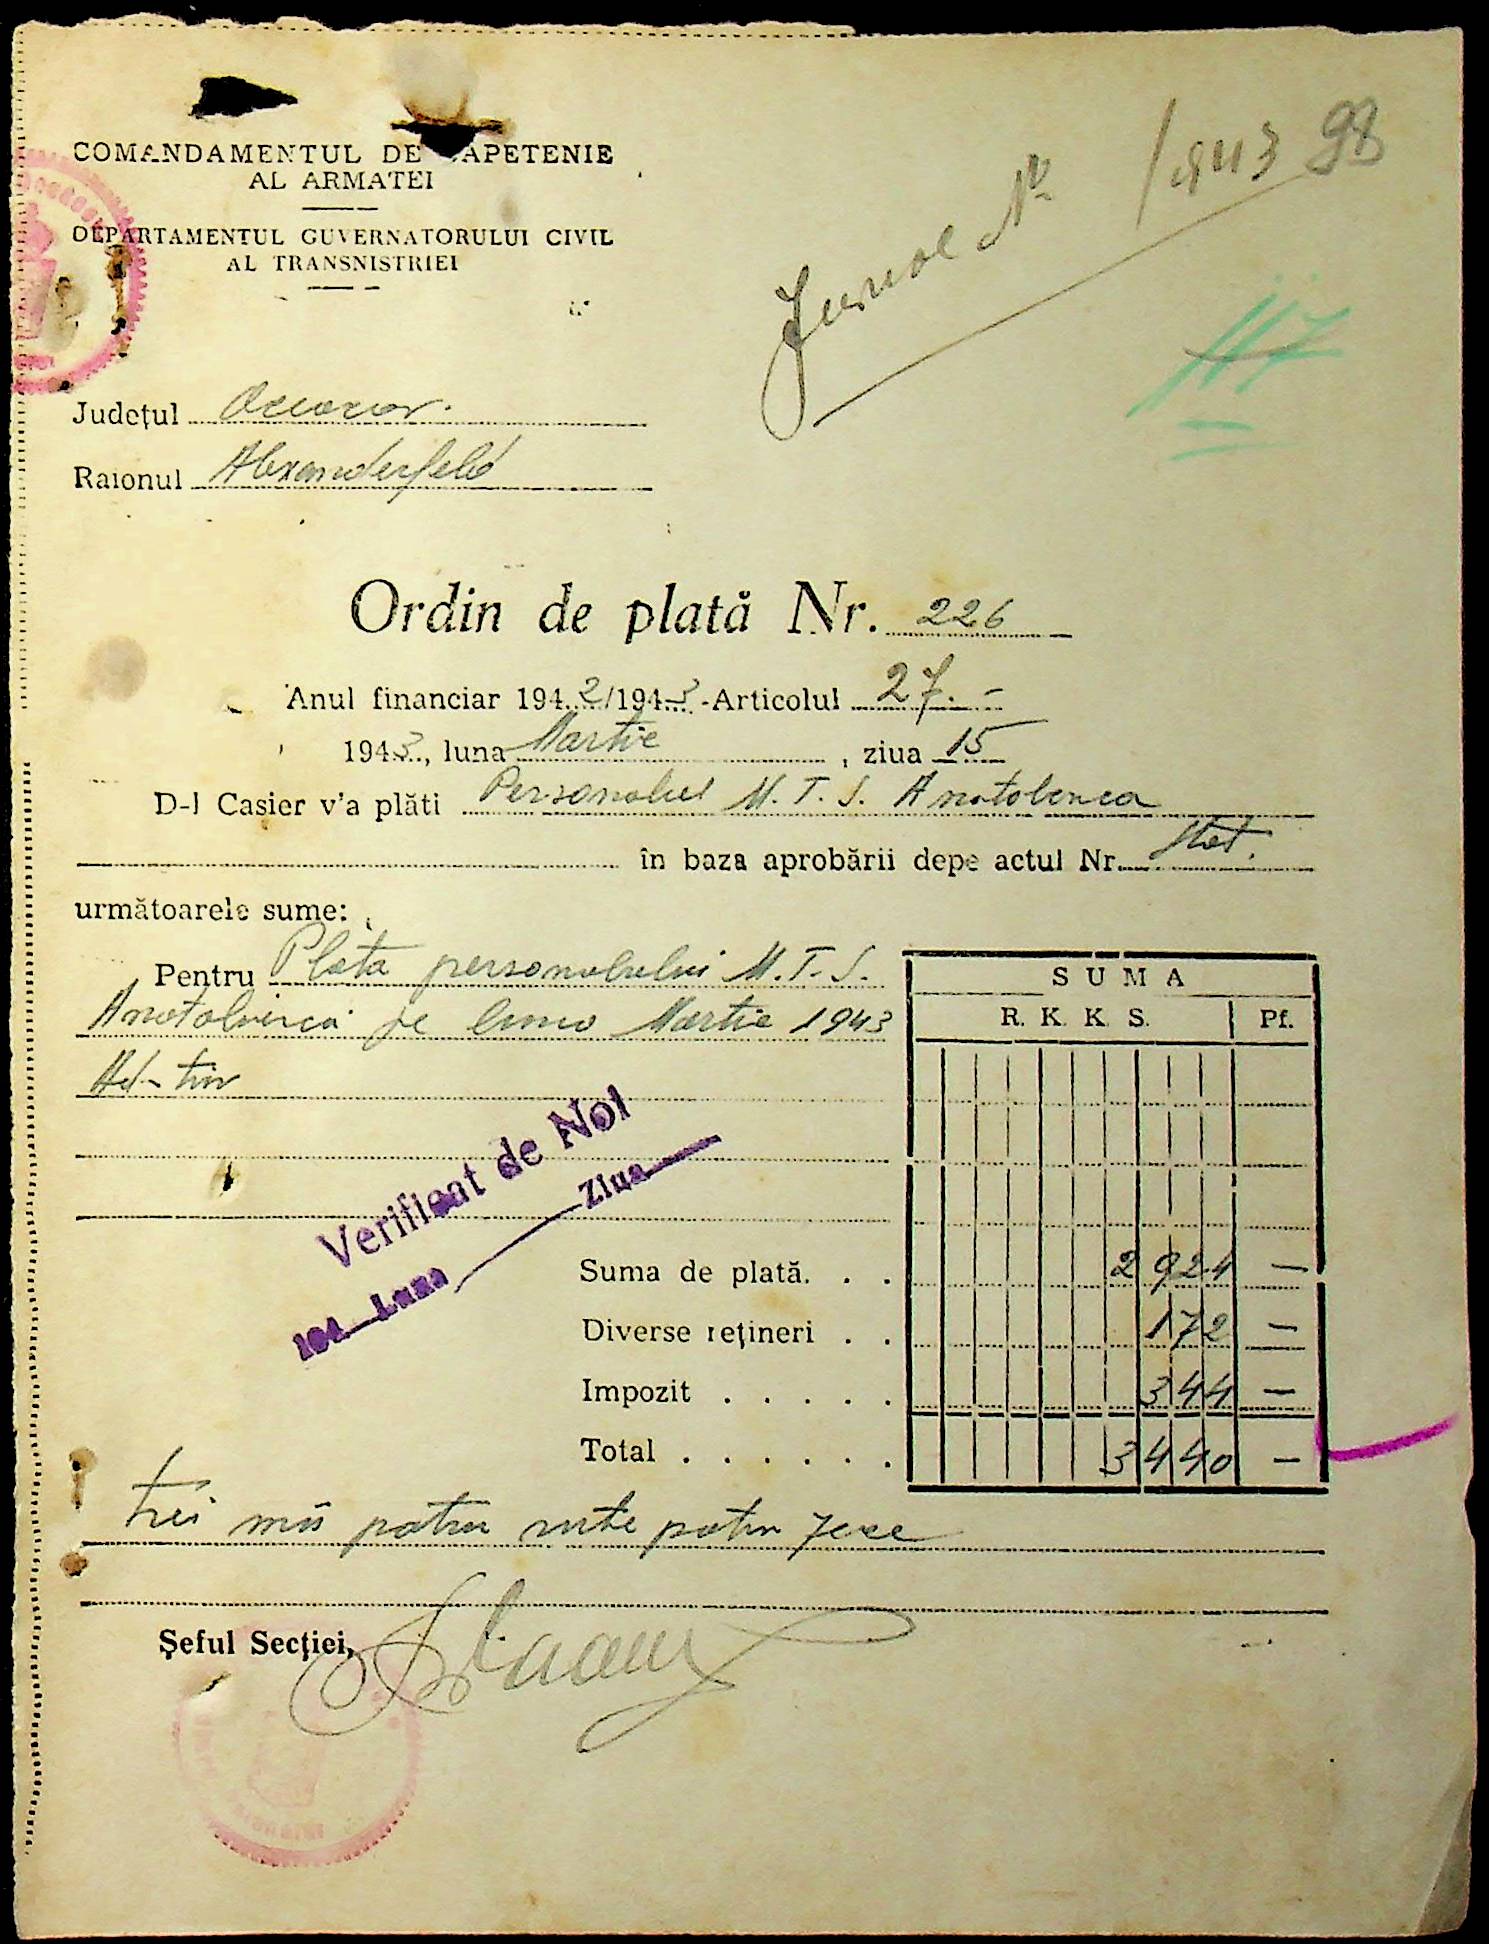 COMANDAMENTUL DE CAPETENIE
AL ARMATEI
DEPARTAMENTUL GUVERNATORULUI CIVIL
AL TRANSNISTRIEI
Jurnal Nº /943 98
117
Județul
Raionul Alexanderfeld
Ordin de plată Nr. 226
Anul financiar 1942/1943-Articolul 27.-
1943, luna Martie, ziua 15
D-l Casier v'a plăti Personalul M.T.S. Anatolievca
în baza aprobării depe actul Nr. Stat.
următoarele sume:
Pentru Plata personalului M.T.S.
Anatolievca pe luna Martie 1943
SUMA
R. K. K. S. Pf.
Verificat de Noi
194 Luna Ziua
Suma de plată. . . 2924 —
Diverse rețineri . . 172 —
Impozit . . . . . 344 —
Total . . . . . . 3440 —
trei mii patru sute patru zece
Șeful Secției,